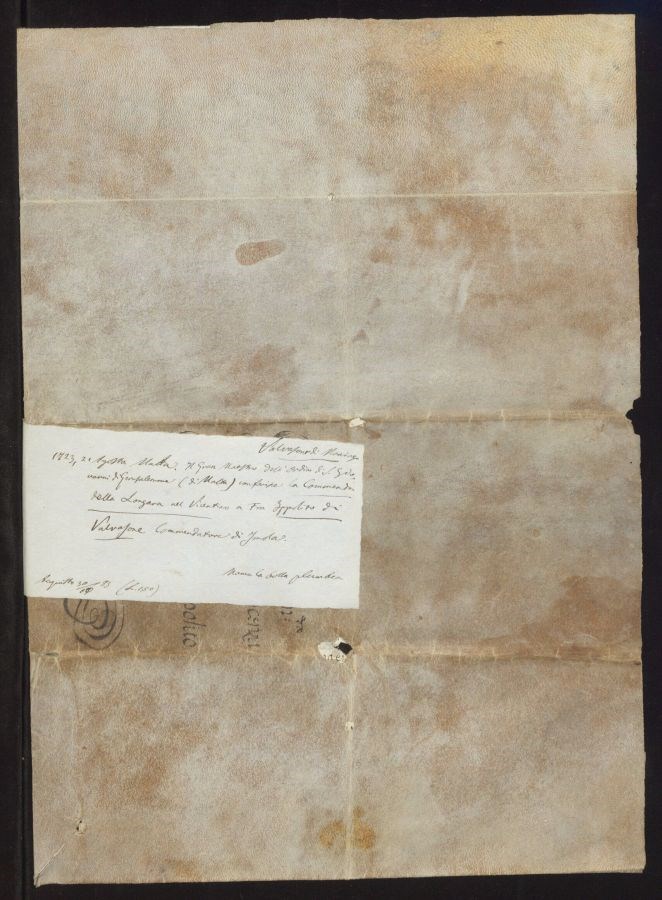 Valvasone di Maniago
1723, 21 Agosto Malta. Il Gran Maestro dell'Ordine di S. Gio-
vanni di Gerusalemme (di Malta) conferisce la Commenda
della Longara nel Vicentino a Fra Ippolito di
Valvasone Commendatore di Imola.
Manca la bolla plumbea
Acquisto (L. 150)